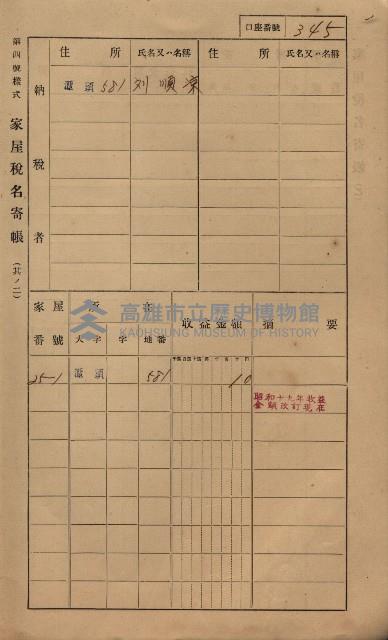 口座番號 345
第四號樣式 家屋稅名寄帳 (其ノ二)
納稅者
住所 氏名又ハ名稱 住所 氏名又ハ名稱
潭頭 581 刘順
家屋番號 所在 收益金額 摘要
大字 字 地番
25-1 潭頭 581 10
昭和十九年收益
金額改訂現在
高雄市立歷史博物館
KAOHSIUNG MUSEUM OF HISTORY